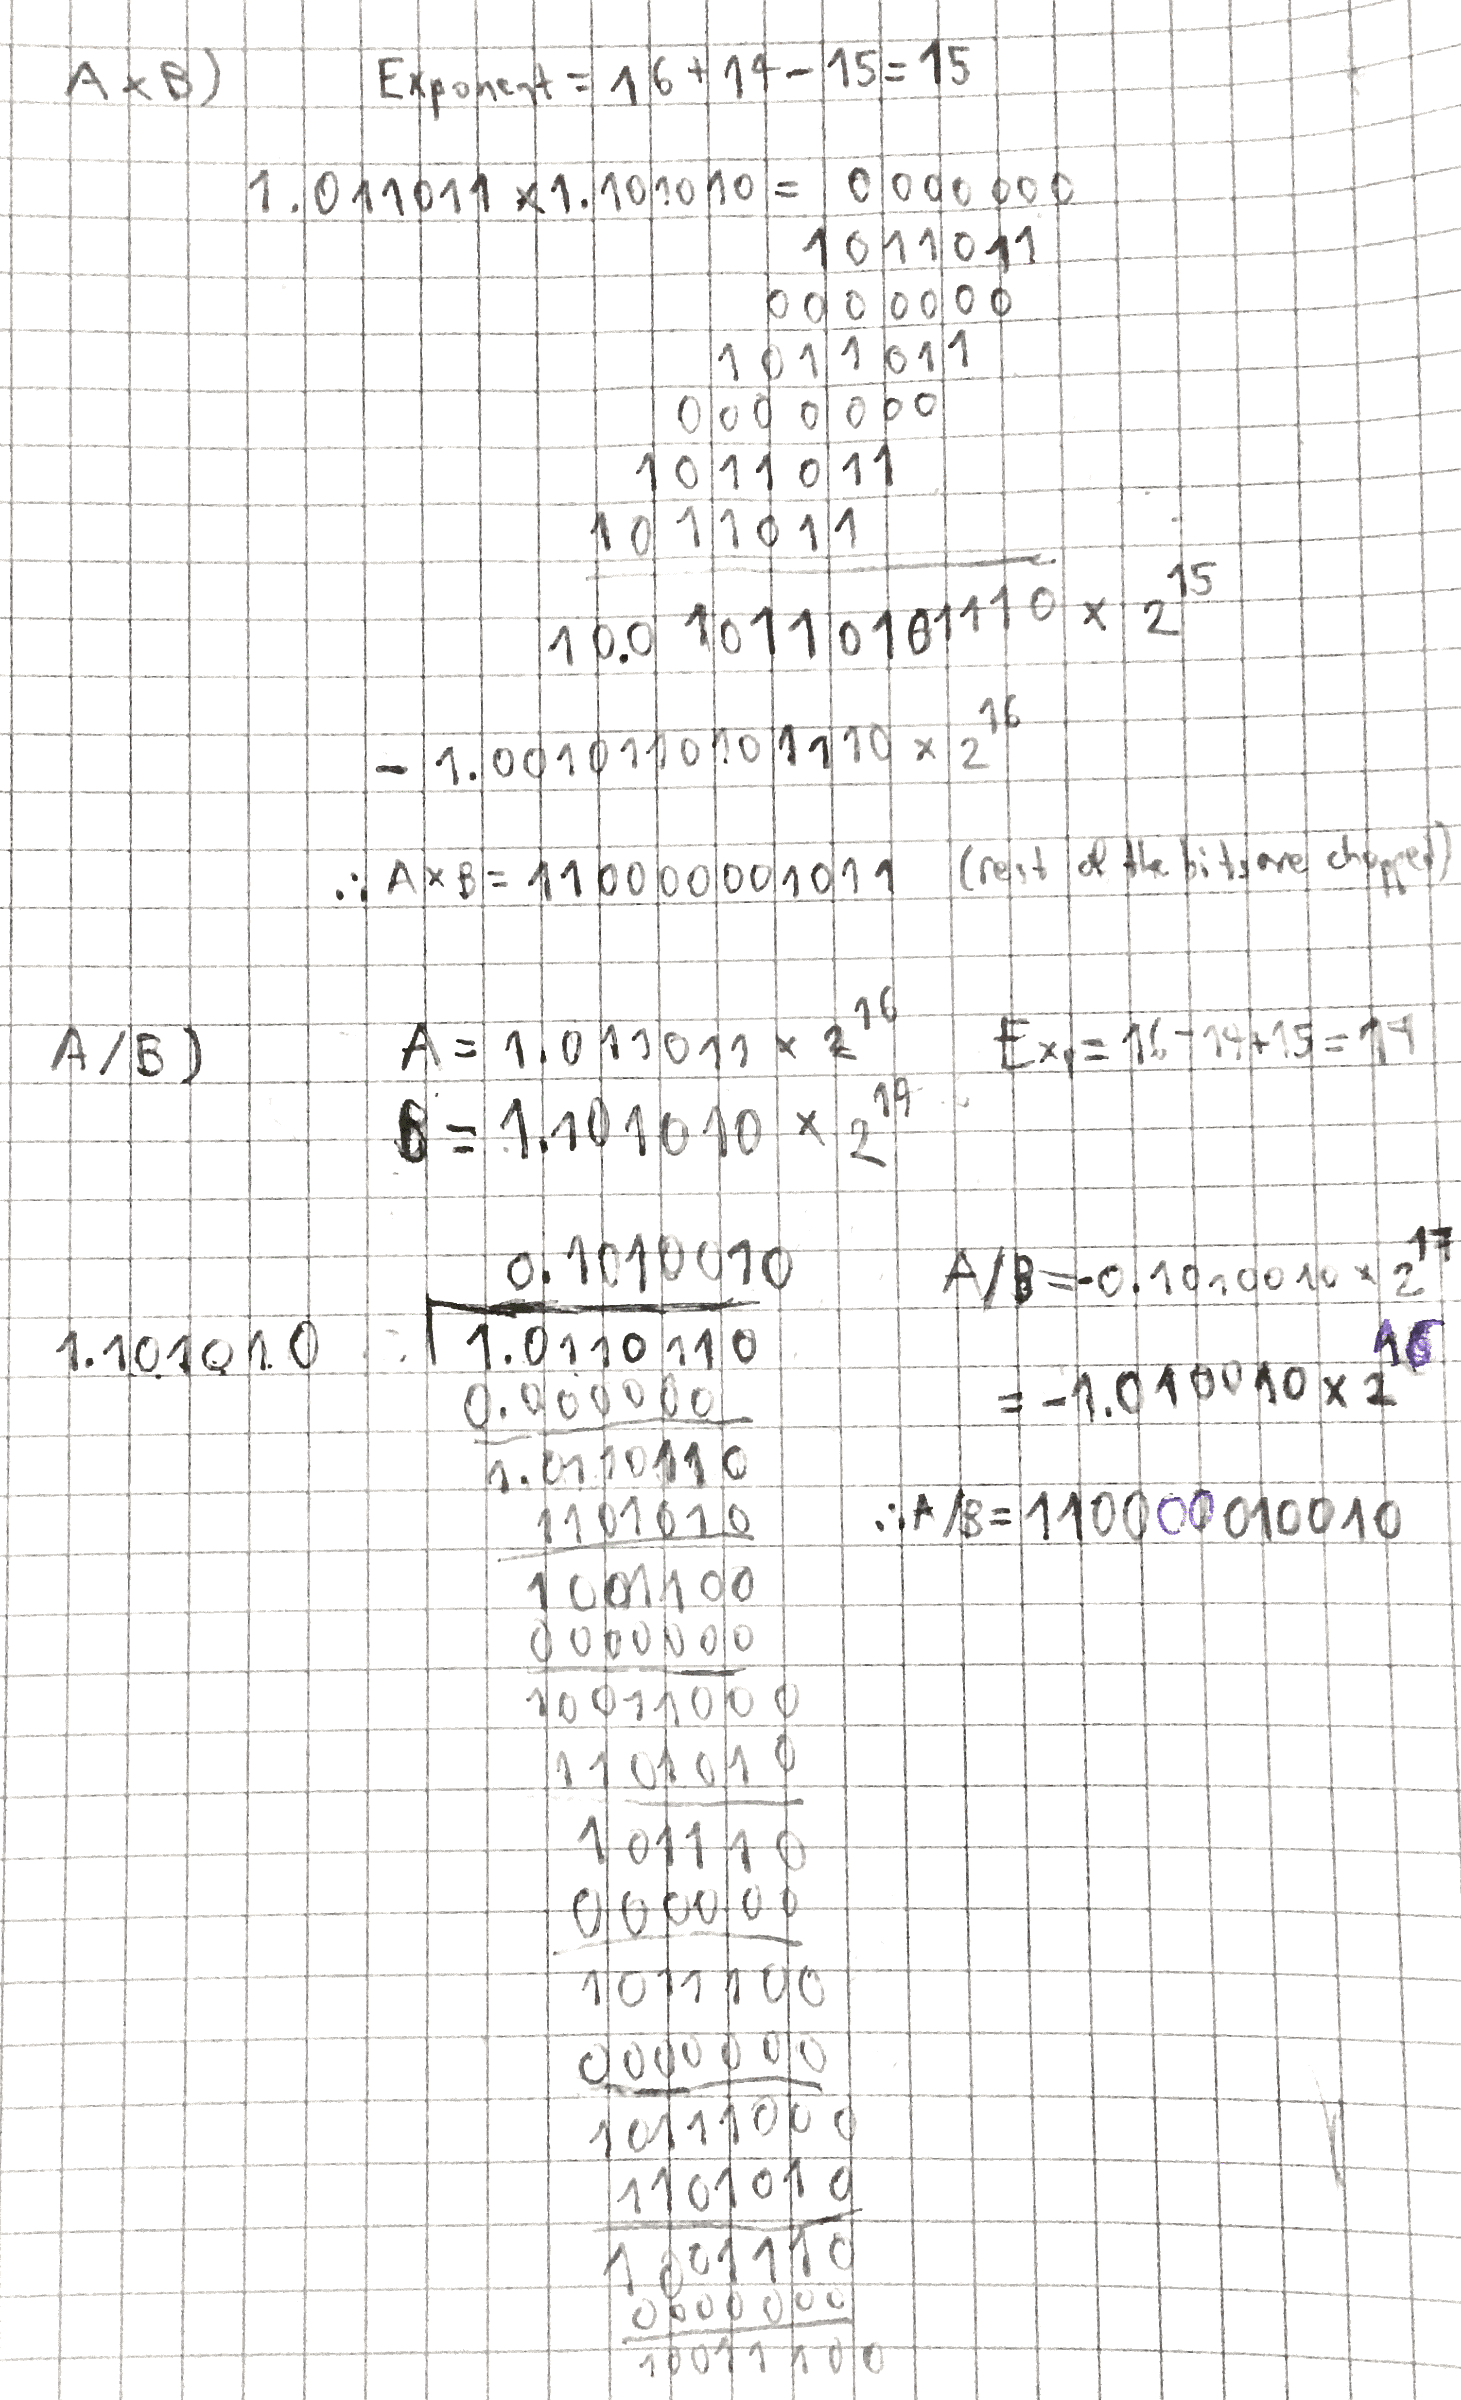 A×B) Exponent = 16+14-15=15
1.011011 ×1.101010 = 0000000
1011011
0000000
1011011
0000000
1011011
1011011
10.01011010 1110 × 2^15
- 1.0010110101110 × 2^16
∴ A×B = 110000001011 (rest of the bits are chopped)
A/B) A = 1.011011 × 2^16 Exp = 16-14+15=17
B = 1.101010 × 2^14
0.1010010 A/B = -0.1010010 × 2^17
1.101010 1.0110110
= -1.010010 × 2^16
0.000000
1.0110110
1101010 ∴ A/B = 110000010010
1001100
0000000
10011000
1101010
101110
000000
1011100
0000000
10111000
1101010
1001110
0000000
10011100